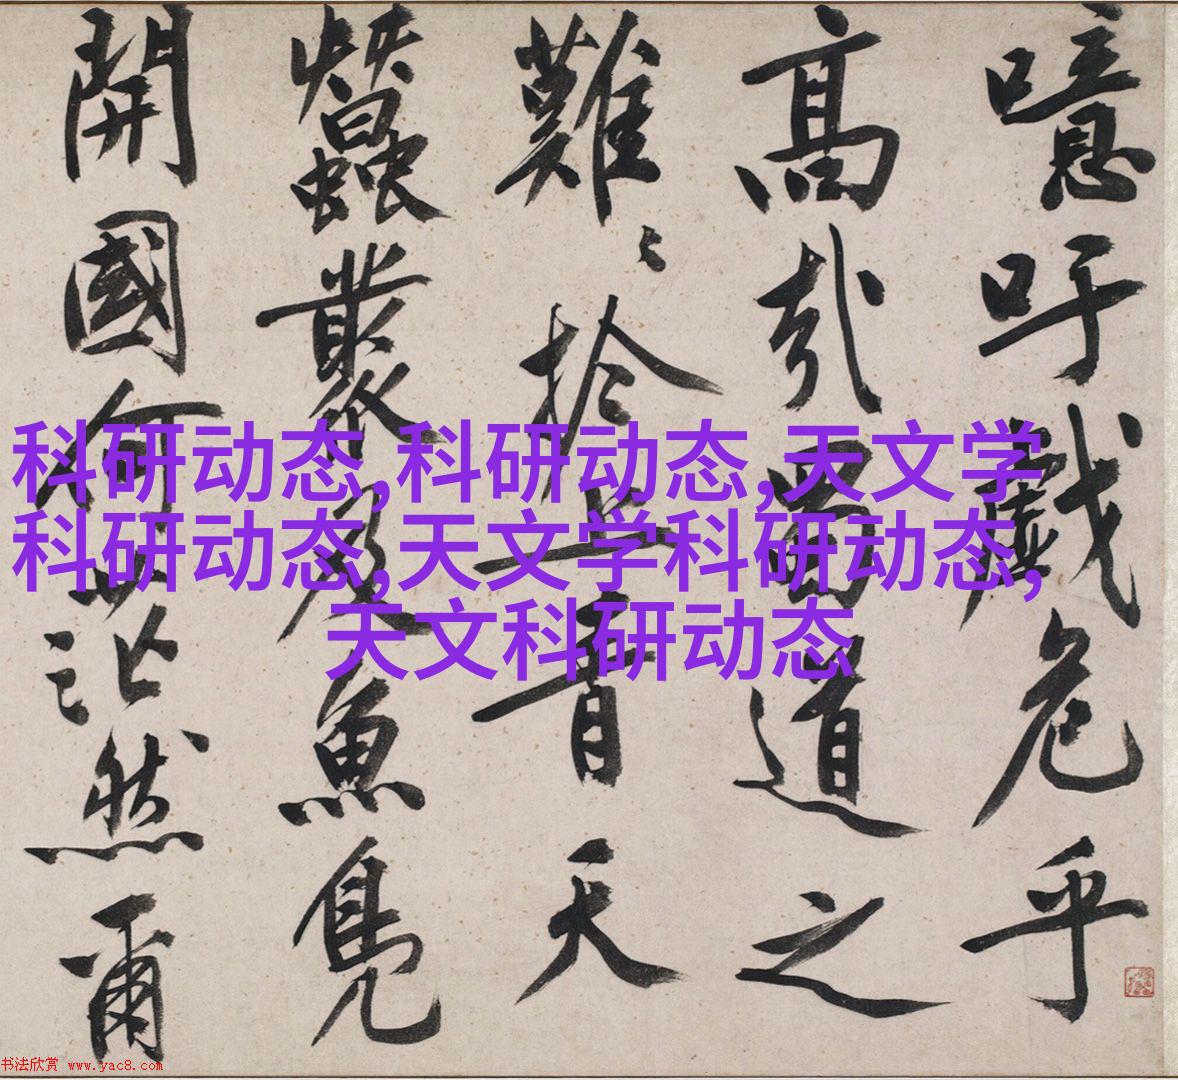 噫吁戲危乎
高哉蜀道之
難〻於上青天
蠶叢及魚鳧
開國何茫然爾
科研动态,科研动态,天文学
科研动态,天文学科研动态,
天文科研动态
书法欣赏 www.yac8.com